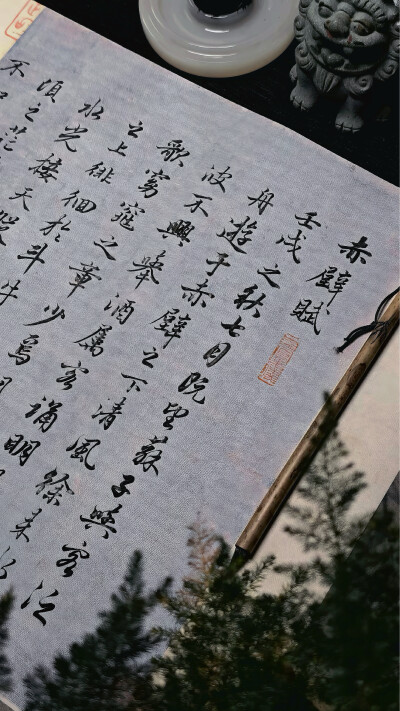 赤壁賦
壬戌之秋七月既望蘇子與客泛
舟遊于赤壁之下清風徐來水
波不興舉酒屬客誦明月
歌窈窕之章少焉月
之上徘徊於斗牛
水光接天
頃之茫
不